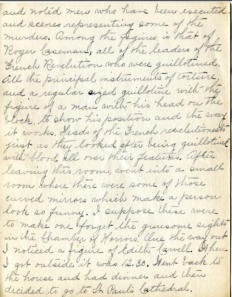 and noted men who have been executed
and scenes representing some of the
murders. Among the figures is that of
Roger Casement, all of the leaders of the
French Revolution who were guillotined.
All the principal instruments of torture,
and a regular sized guillotine with the
figure of a man with his head on the
block, to show his position and the way
it works. Heads of the French revolutionists
just as they looked after being guillotined
with blood all over their features. After
leaving this room, went into a small
room where there were some of those
curved mirrors which make a person
look so funny. I suppose these were
to make one forget the gruesome sights
in the Chamber of Horrors. On the way out
I noticed a figure of Edith Cavell. When
I got outside it was 12.30. Went back to
the house and had dinner and then
decided to go to St Pauls Cathedral.